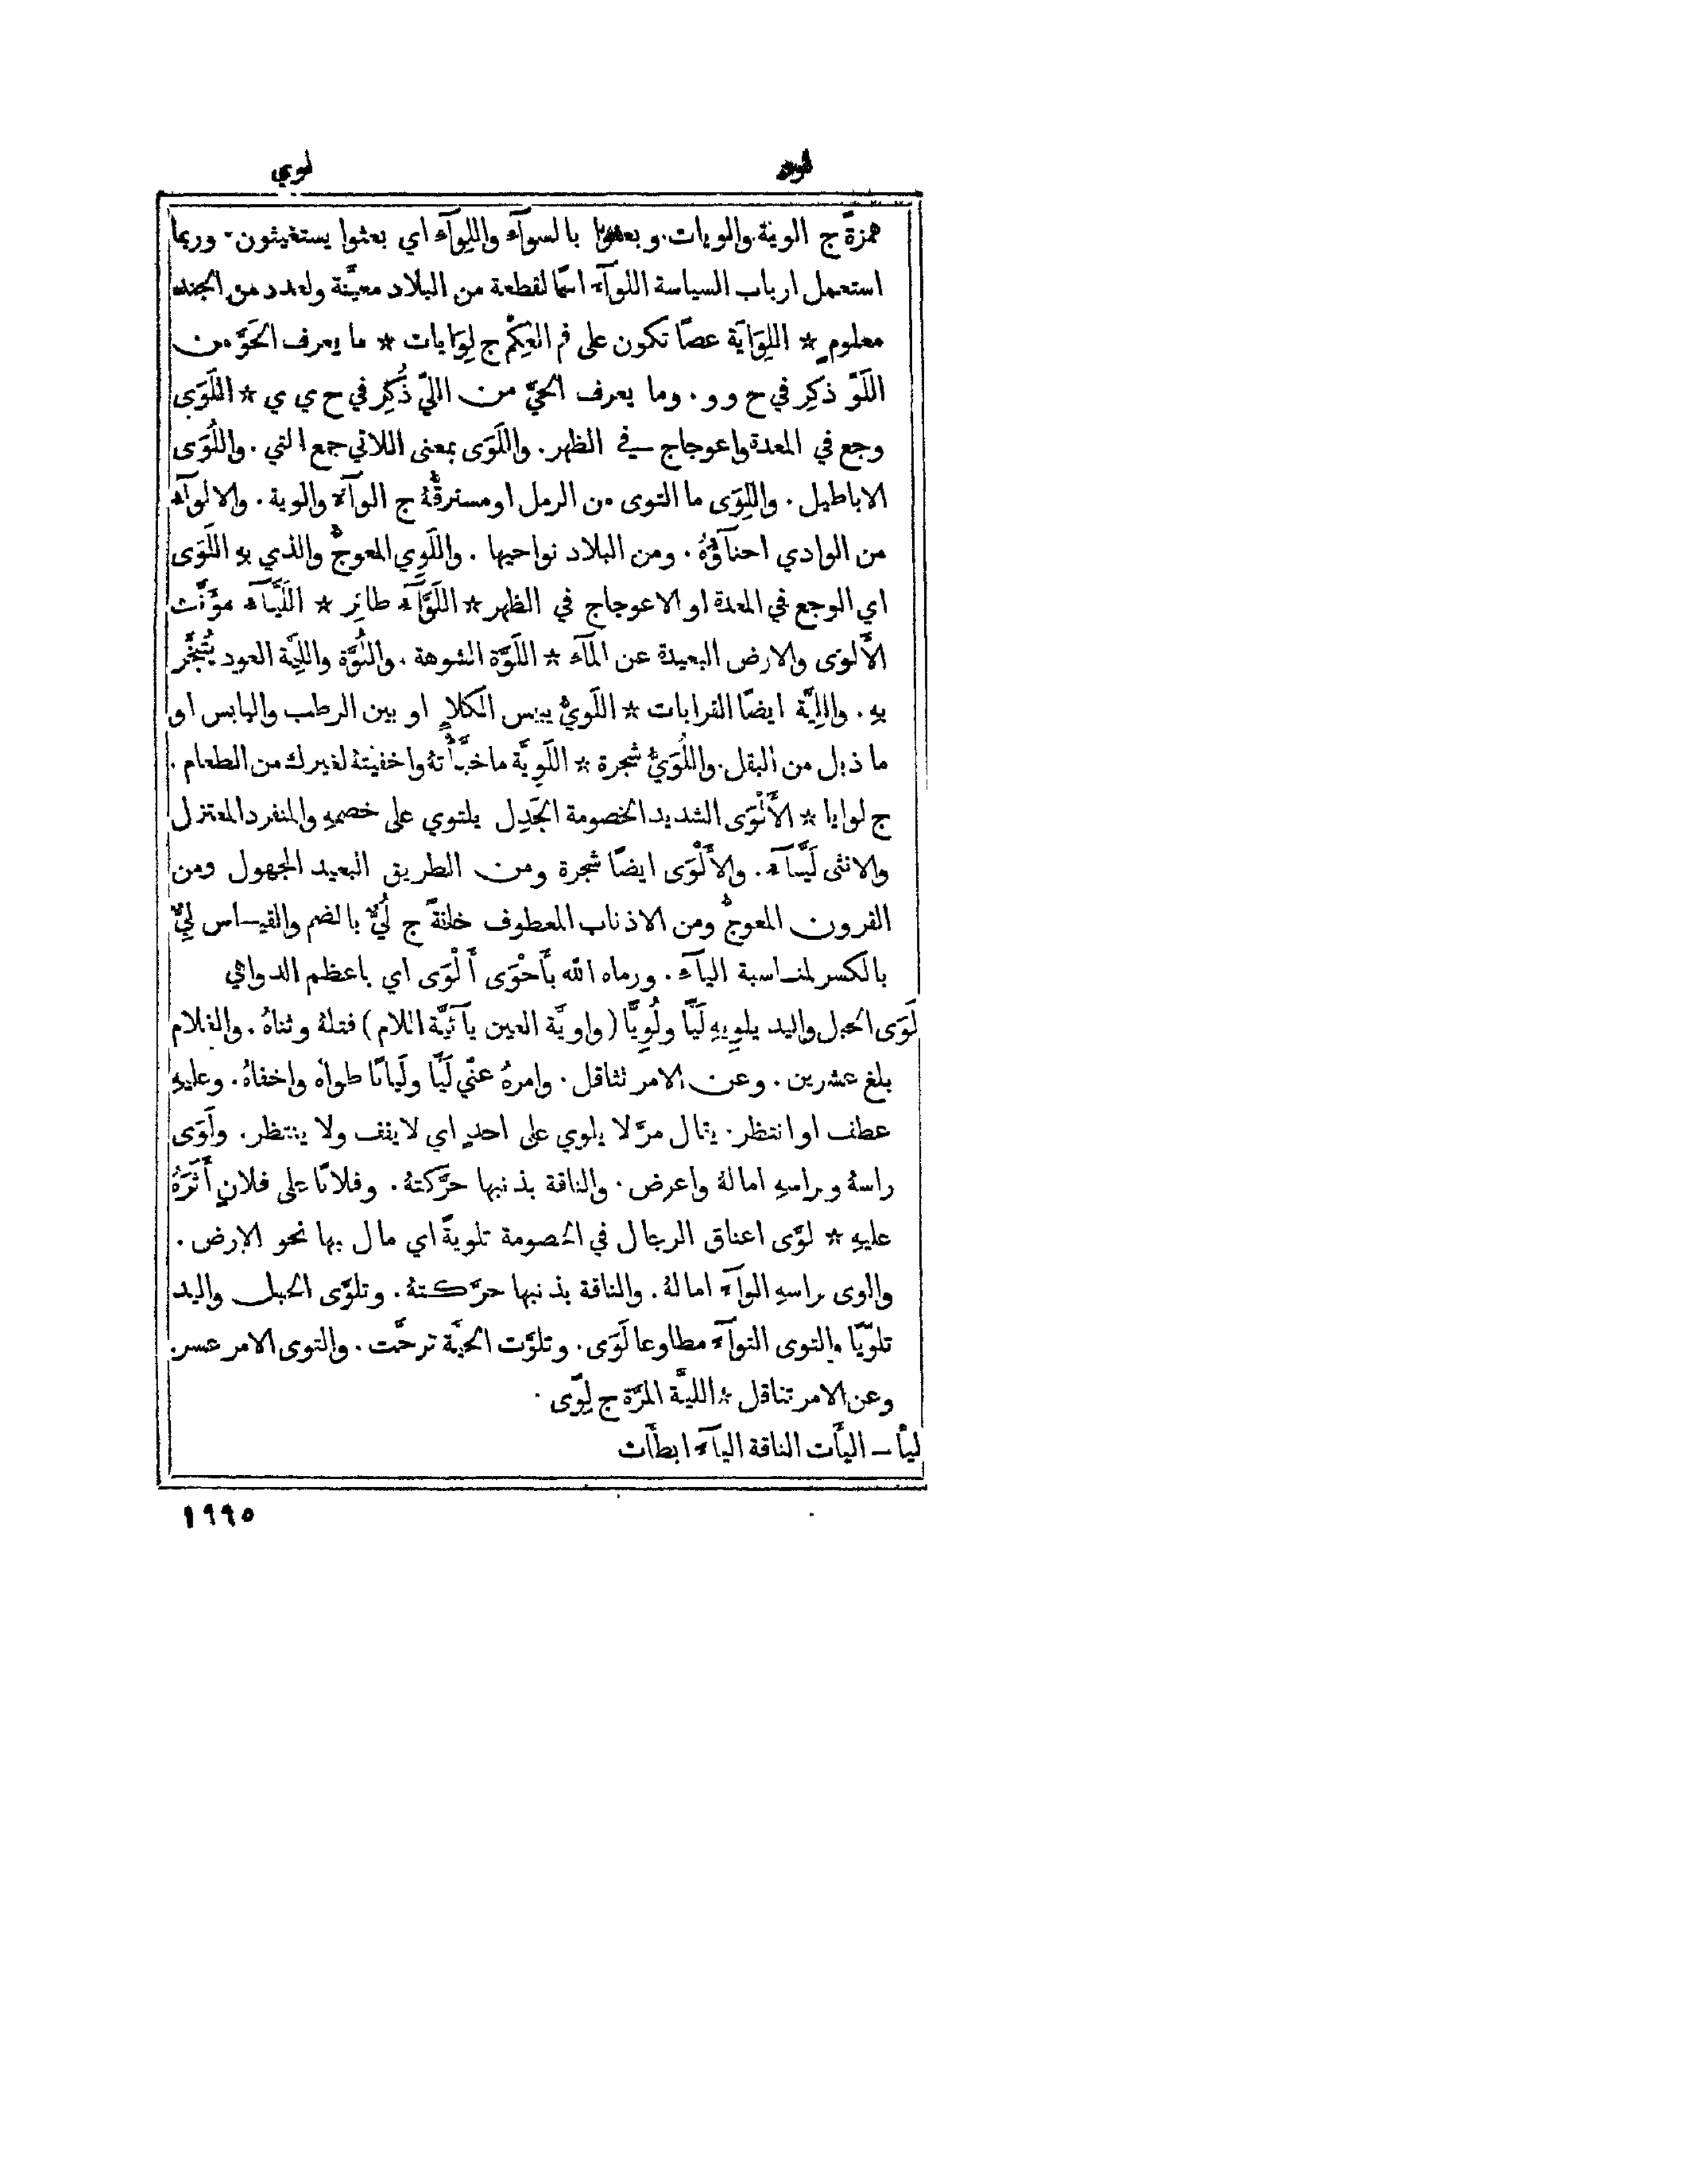 لوي
همزةً ج الوية والويات. وبعثوا بالسوآء واللِوآء اي بعثوا يستغيثون. وربما
استعمل ارباب السياسة اللوآء اسمًا لقطعة من البلاد معيَّنة ولعدد من الجند
معلومٍ * اللِوَاية عصًا تكون على فم العِكْم ج لِوَايات * ما يعرف الحَوَّ من
اللَوّ ذُكِر في ح و و. وما يعرف الحيَّ من الليّ ذُكِر في ح ي ي * اللَوَى
وجع في المعدة واعوجاج في الظهر. واللَوَى بمعنى اللاتي جمع التي. واللُوَى
الاباطيل. واللِوَى ما التوى من الرمل او مسترقُّهُ ج الوآء والوية. والالوآء
من الوادي احنآؤُهُ. ومن البلاد نواحيها. واللَوِي المعوجُّ والذي بهِ اللَوَى
اي الوجع في المعدة او الاعوجاج في الظهر * اللَوَّآء طائِر * اللَيَّآء مؤَنَّث
الأَلوَى والارض البعيدة عن المآء * اللَوَّة الشوهة. واللُوَّة واللِيَّة العود يُتبخَّر
بهِ. واللِيَّة ايضًا القرابات * اللَويُّ يبيس الكلاءِ او بين الرطب واليابس او
ما ذبل من البقل. واللُوَيُّ شجرة * اللَوِيَّة ما خبَّأْتهُ واخفيتهُ لغيرك من الطعام.
ج لوايا * الأَلْوَى الشديد الخصومة الجَدِل يلتوي على خصمهِ والمنفرد المعتزل
والانثى لَيَّآء. والأَلْوَى ايضًا شجرة ومن الطريق البعيد المجهول ومن
القرون المعوجُّ ومن الاذناب المعطوف خلقةً ج لُيٌّ بالضم والقياس لِيٌّ
بالكسر لمناسبة اليآء. ورماه الله بأَحْوَى أَلْوَى اي باعظم الدواهي
لَوَى الحبل واليد يلوِيهِ لَيًّا ولُوِيًّا (واويَّة العين يآئيَّة اللام) فتلهُ وثناهُ. والغلام
بلغ عشرين. وعن الامر تثاقل. وامرهُ عنّي لَيًّا ولَيانًا طواهُ واخفاهُ. وعليهِ
عطف او انتظر. يقال مرَّ لا يلوي على احدٍ اي لا يقف ولا ينتظر. ولَوَى
راسهُ وبراسهِ امالهُ واعرض. والناقة بذنبها حرَّكتهُ. وفلانًا على فلانٍ أَثَرَهُ
عليهِ * لوَّى اعناق الرجال في الخصومة تلويةً اي مال بها نحو الارض.
والوى براسهِ الوآءً امالهُ. والناقة بذنبها حرَّكتهُ. وتلوَّى الحبل واليد
تلوّيًا والتوى التوآءً مطاوعا لَوَى. وتلوَّت الحيَّة ترحَّت. والتوى الامر عسر.
وعن الامر تثاقل * الليَّة المرَّة ج لِوًى.
ليأ – اليأَت الناقة اليآءً ابطأَت
١٩٩٥